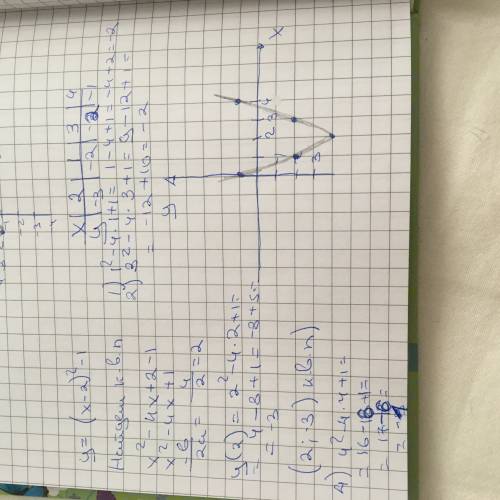 y = (x-2)² - 1
Найдем к.в.п
x² - 4x + 2 - 1
x² - 4x + 1
-b/2a = 4/2 = 2
y(2) = 2² - 4·2 + 1 =
= 4 - 8 + 1 = -8 + 5 =
= -3
(2; 3) к.в.п)
4) 4² - 4·4 + 1 =
= 16 - 18 + 1 =
= 17 - 8 =
x 2 1 3 4
y -3 -2 -2 -1
1) 1² - 4·1 + 1 = 1 - 4 + 1 = -4 + 2 = -2
2) 3² - 4·3 + 1 = 9 - 12 + 1 =
= -12 + 10 = -2
y
x
2 3 4
-3